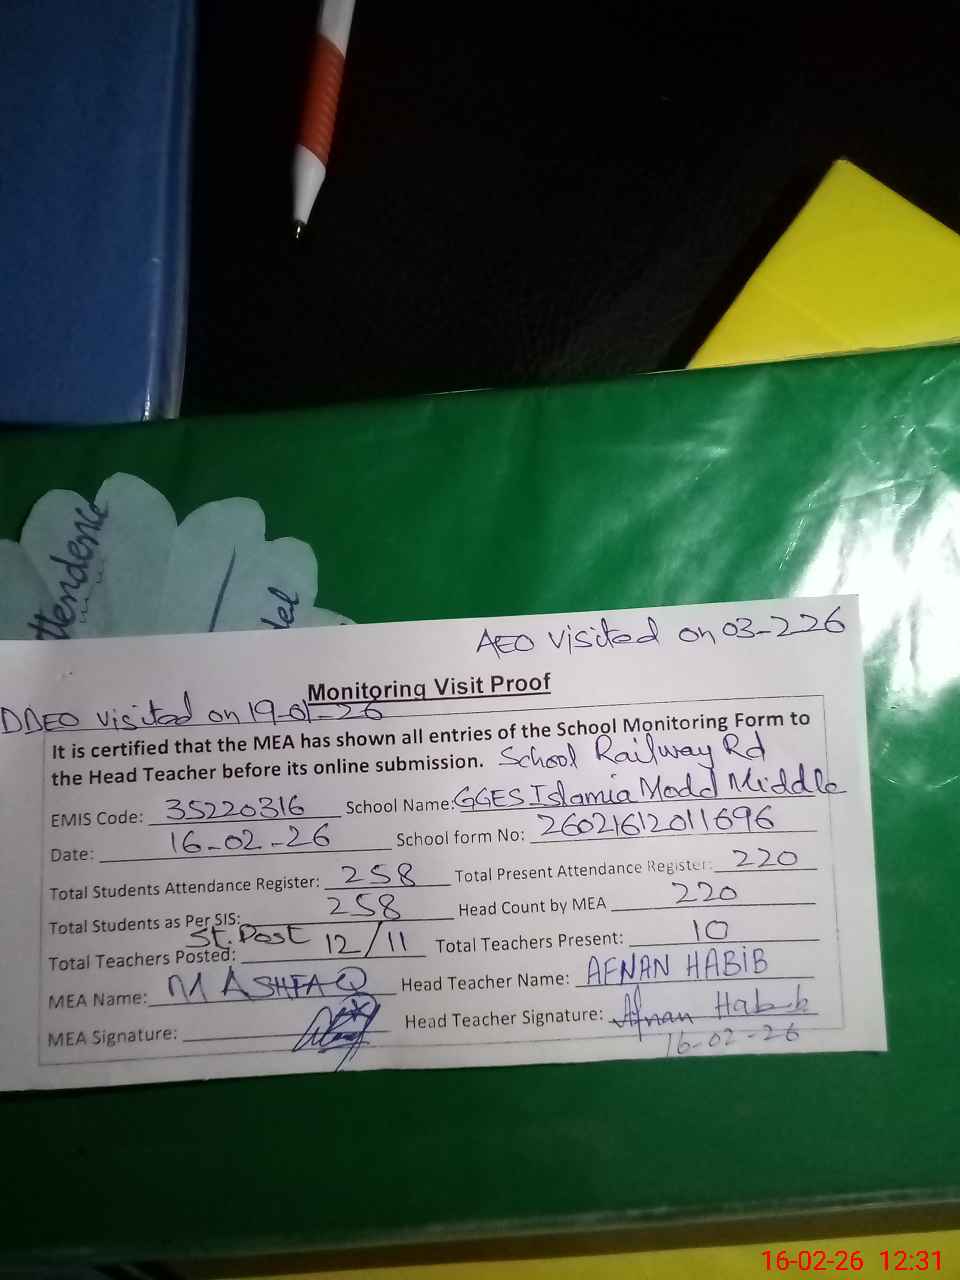 ttendence
del
AEO visited on 03-2-26
Monitoring Visit Proof
DDEO visited on 19-01-26
It is certified that the MEA has shown all entries of the School Monitoring Form to
the Head Teacher before its online submission. School Railway Rd
EMIS Code: 35220316 School Name: GGES Islamia Model Middle
Date: 16-02-26 School form No: 26021612011696
Total Students Attendance Register: 258 Total Present Attendance Register: 220
Total Students as Per SIS: 258 Head Count by MEA 220
St. Post
Total Teachers Posted: 12/11 Total Teachers Present: 10
MEA Name: M ASHFAQ Head Teacher Name: AFNAN HABIB
MEA Signature: Head Teacher Signature: Afnan Habib
16-02-26
16-02-26 12:31